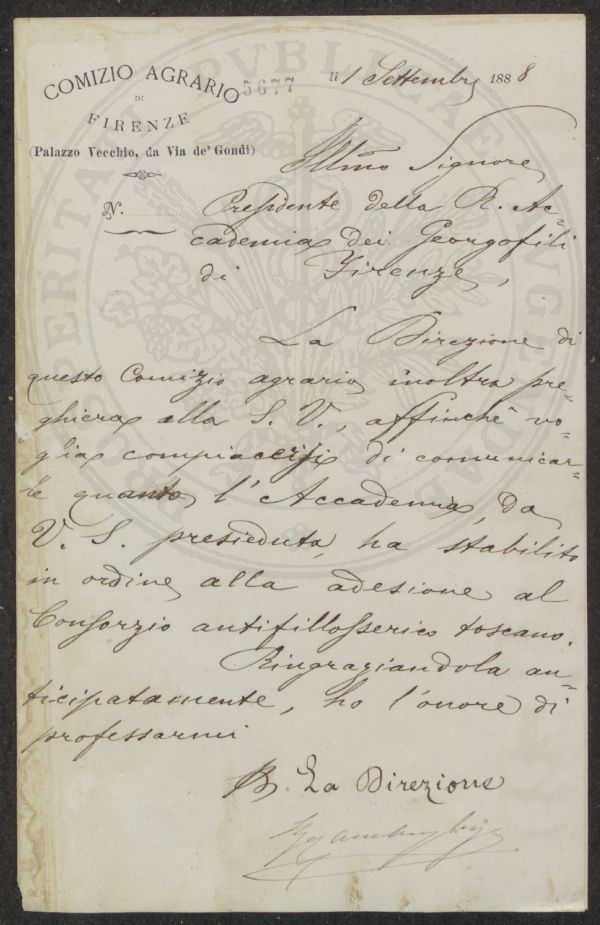 COMIZIO AGRARIO
DI
FIRENZE
(Palazzo Vecchio, da Via de' Gondi)
N.
5677
li 1 Settembre 1888
Illmo Signore
Presidente della R. Ac=
cademia dei Georgofili
di Firenze,
La Direzione di
questo Comizio agrario inoltra pre=
ghiera alla S. V., affinchè vo=
glia compiacersi di comunicar=
le quanto l'Accademia, da
V. S. presieduta, ha stabilito
in ordine alla adesione al
Consorzio antifillosserico toscano.
Ringraziandola an=
ticipatamente, ho l'onore di
professarmi
La Direzione
PROSPERITATI PVBLICAE AVGENDAE